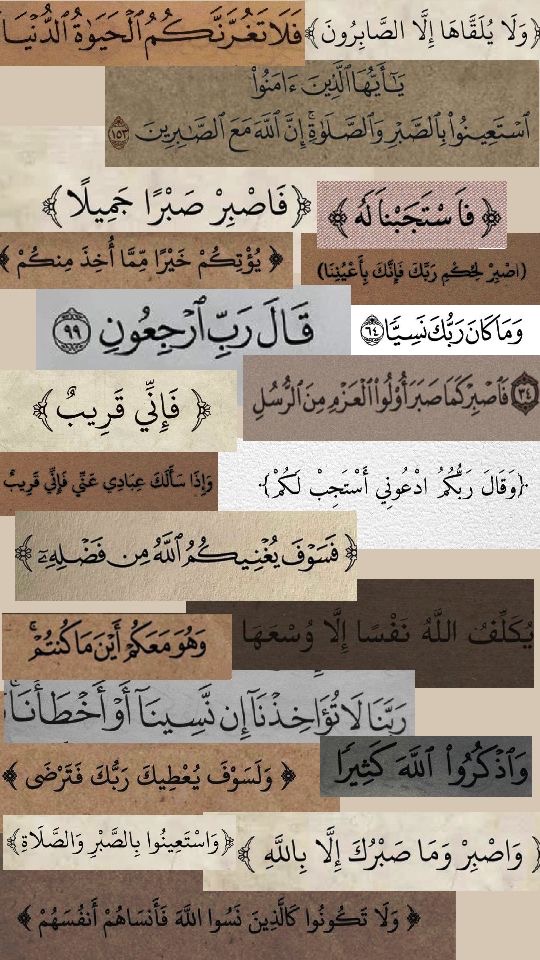 فَلَا تَغُرَّنَّكُمُ ٱلْحَيَوٰةُ ٱلدُّنْيَا
﴿وَلَا يُلَقَّاهَا إِلَّا الصَّابِرُونَ﴾
يَٰٓأَيُّهَا ٱلَّذِينَ ءَامَنُوا۟
ٱسْتَعِينُوا۟ بِٱلصَّبْرِ وَٱلصَّلَوٰةِ ۚ إِنَّ ٱللَّهَ مَعَ ٱلصَّٰبِرِينَ ١٥٣
﴿فَاصْبِرْ صَبْرًا جَمِيلًا﴾
﴿فَاسْتَجَبْنَا لَهُ﴾
﴿يُؤْتِكُمْ خَيْرًا مِّمَّا أُخِذَ مِنكُمْ﴾
(اصْبِرْ لِحُكْمِ رَبِّكَ فَإِنَّكَ بِأَعْيُنِنَا)
قَالَ رَبِّ ٱرْجِعُونِ ٩٩
وَمَا كَانَ رَبُّكَ نَسِيًّا ٦٤
﴿فَإِنِّي قَرِيبٌ﴾
٣٤ فَٱصْبِرْ كَمَا صَبَرَ أُو۟لُوا۟ ٱلْعَزْمِ مِنَ ٱلرُّسُلِ
وَإِذَا سَأَلَكَ عِبَادِي عَنِّي فَإِنِّي قَرِيبٌ
﴿وَقَالَ رَبُّكُمُ ادْعُونِي أَسْتَجِبْ لَكُمْ﴾
﴿فَسَوْفَ يُغْنِيكُمُ ٱللَّهُ مِن فَضْلِهِۦٓ﴾
يُكَلِّفُ اللَّهُ نَفْسًا إِلَّا وُسْعَهَا
وَهُوَ مَعَكُمْ أَيْنَ مَا كُنتُمْ ۚ
رَبَّنَا لَا تُؤَاخِذْنَآ إِن نَّسِينَآ أَوْ أَخْطَأْنَا ۚ
وَٱذْكُرُوا۟ ٱللَّهَ كَثِيرًا
﴿وَلَسَوْفَ يُعْطِيكَ رَبُّكَ فَتَرْضَى﴾
﴿وَاسْتَعِينُوا بِالصَّبْرِ وَالصَّلَاةِ﴾
﴿وَاصْبِرْ وَمَا صَبْرُكَ إِلَّا بِاللَّهِ﴾
﴿وَلَا تَكُونُوا كَالَّذِينَ نَسُوا اللَّهَ فَأَنسَاهُمْ أَنفُسَهُمْ﴾